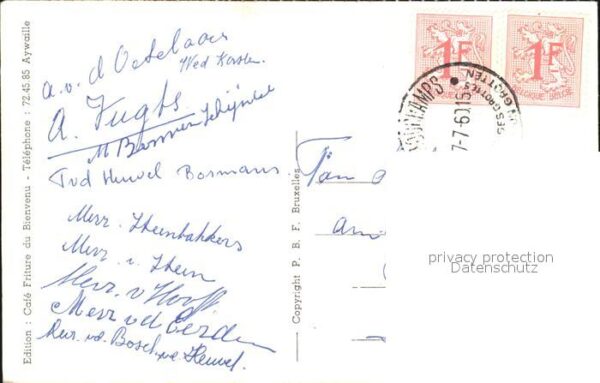 Edition : Café Friture du Bienvenu - Téléphone : 72.45.85 Aywaille
a.v.d Oetelaar
Wed Korsten
A. Vugts
M Schijndel
Tvd Heuvel Bormans
Mevr. Steenbakkers
Mevr. v. Stein
Mevr. v Hooff
Mevr vd Eerden
Mevr. vd. Bosch-v.d. Heuvel.
Copyright P. B. F. Bruxelles
1F
1F
BELGIQUE BELGIË
CHAMPS
7-7-60
SES GROTTES
GROTTEN
privacy protection
Datenschutz